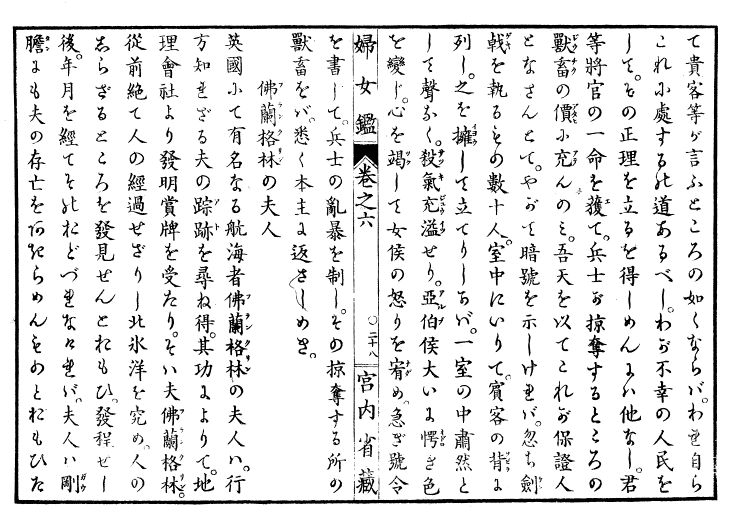 て貴客等が言ふところの如くならバ。われ自ら
これに處するの道あるべし。わが不幸の人民を
して。その正理を立るを得しめんにハ他なし。君
等將官の一命を獲て。兵士が掠奪するところの
獸畜の價に充んのミ。吾天を以てこれが保證人
となさんとて。やがて暗號を示しけれバ。忽ち劍
戟を執るもの數十人。室中にいりて。賓客の背に
列し。之を擁して立てりしかバ。一室の中肅然と
して聲なく。殺氣充溢せり。亞伯侯大いに愕き色
を變じ。心を竭して女侯の怒りを宥め。急ぎ號令
婦女鑑 卷之六 〇二十八 宮内省藏
を書して。兵士の亂暴を制し。その掠奪する所の
獸畜をバ。悉く本主に返さしめき。
佛蘭格林の夫人
英國にて有名なる航海者佛蘭格林の夫人ハ。行
方知れざる夫の踪跡を尋ね得。其功によりて。地
理會社より發明賞牌を受たり。そハ夫佛蘭格林。
從前絶て人の經過せざりし北氷洋を究め。人の
しらざるところを發見せんとおもひ。發程せし
後。年月を經てそのおとづれなけれバ。夫人ハ剛
膽にも夫の存亡をあきらめんものとおもひた